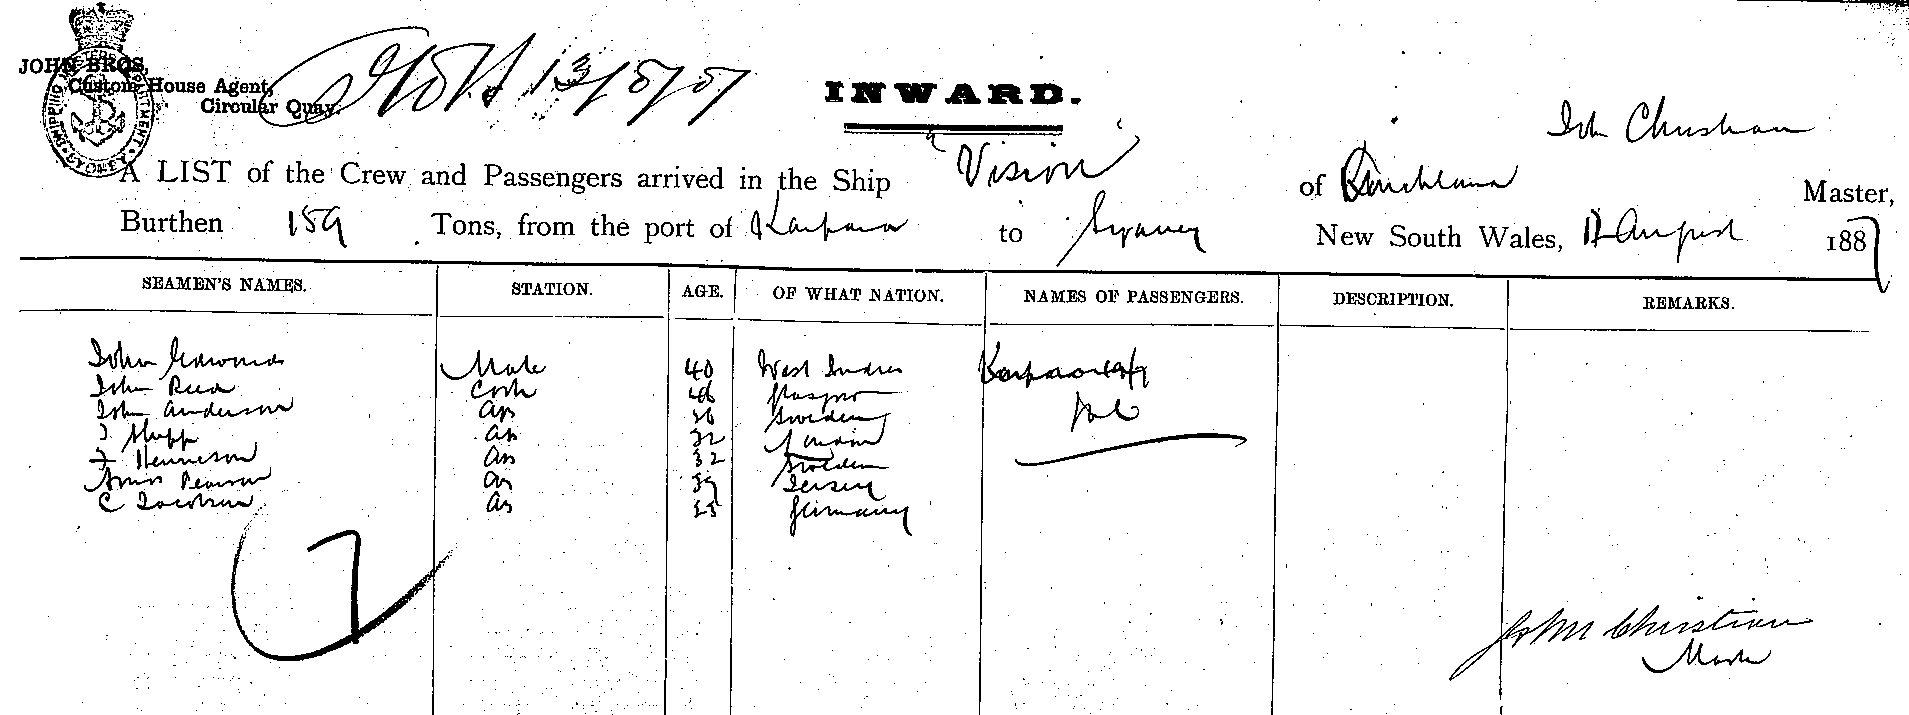 JOHN BROS,
Custom House Agent,
Circular Quay.
SHIPPING MASTER'S DEPARTMENT. SYDNEY
13/8/87
INWARD.
John Christian
A LIST of the Crew and Passengers arrived in the Ship "Vision" of Master,
Burthen 159 Tons, from the port of to Sydney New South Wales, August 1887
SEAMEN'S NAMES. STATION. AGE. OF WHAT NATION. NAMES OF PASSENGERS. DESCRIPTION. REMARKS.
John Edwards Mate 40 West Indies
John Reed Cook 46 Glasgow
John Anderson AB 36 Sweden
AB 32 London
AB 32 Sweden
Pearson AB 39 Jersey
C Jacobsen AB 25 Germany
7
John Christian
Master